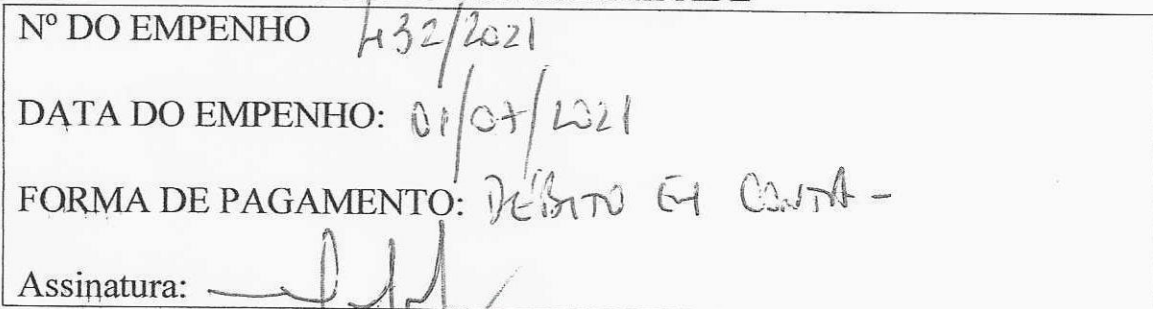 Nº DO EMPENHO 432/2021
DATA DO EMPENHO: 01/07/2021
FORMA DE PAGAMENTO: DÉBITO EM CONTA -
Assinatura: